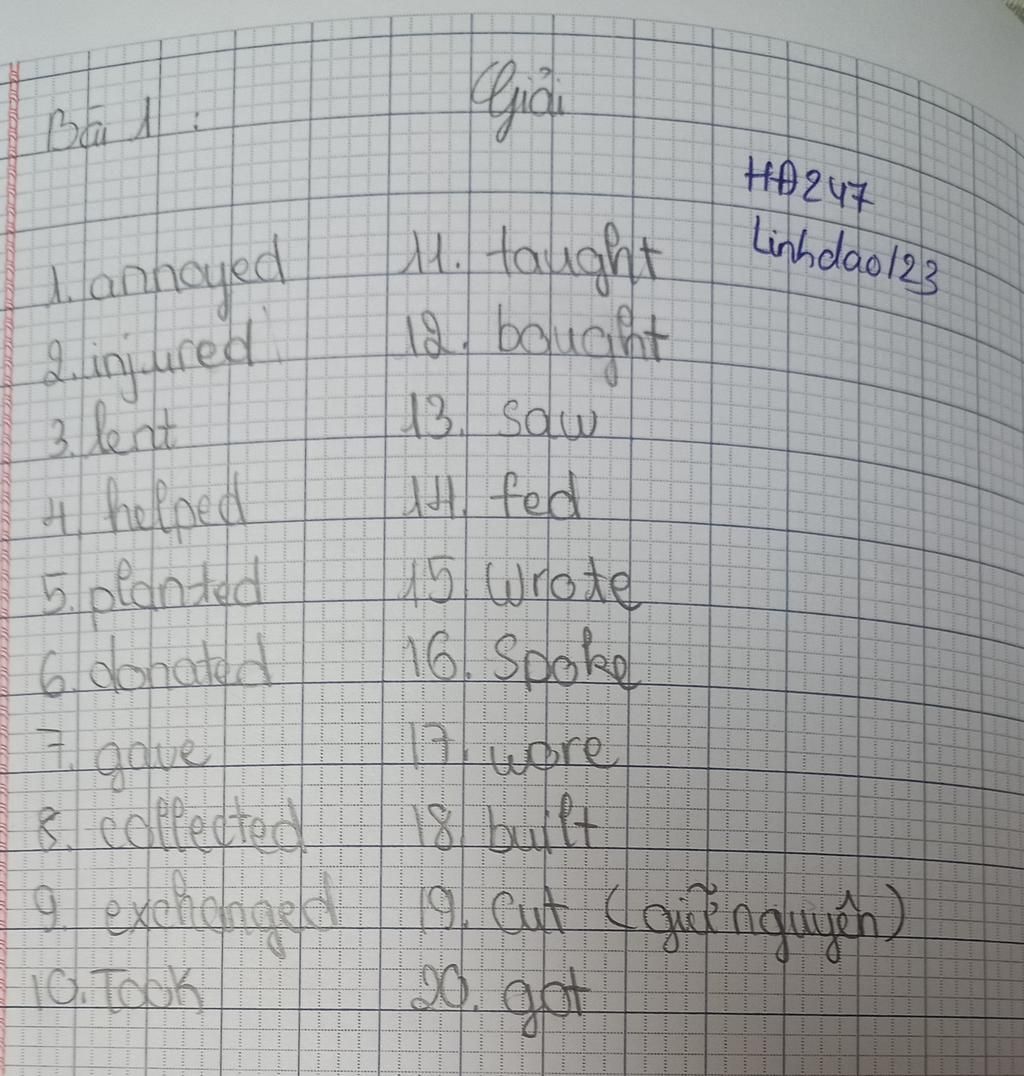 Bài 1:
Giải
HĐ247
Linhdao123
1. annoyed
2. injured
3. lent
4. helped
5. planted
6. donated
7. gave
8. collected
9. exchanged
10. Took
11. taught
12. bought
13. saw
14. fed
15 wrote
16. Spoke
17. wore
18 built
19. cut (giữ nguyên)
20. got